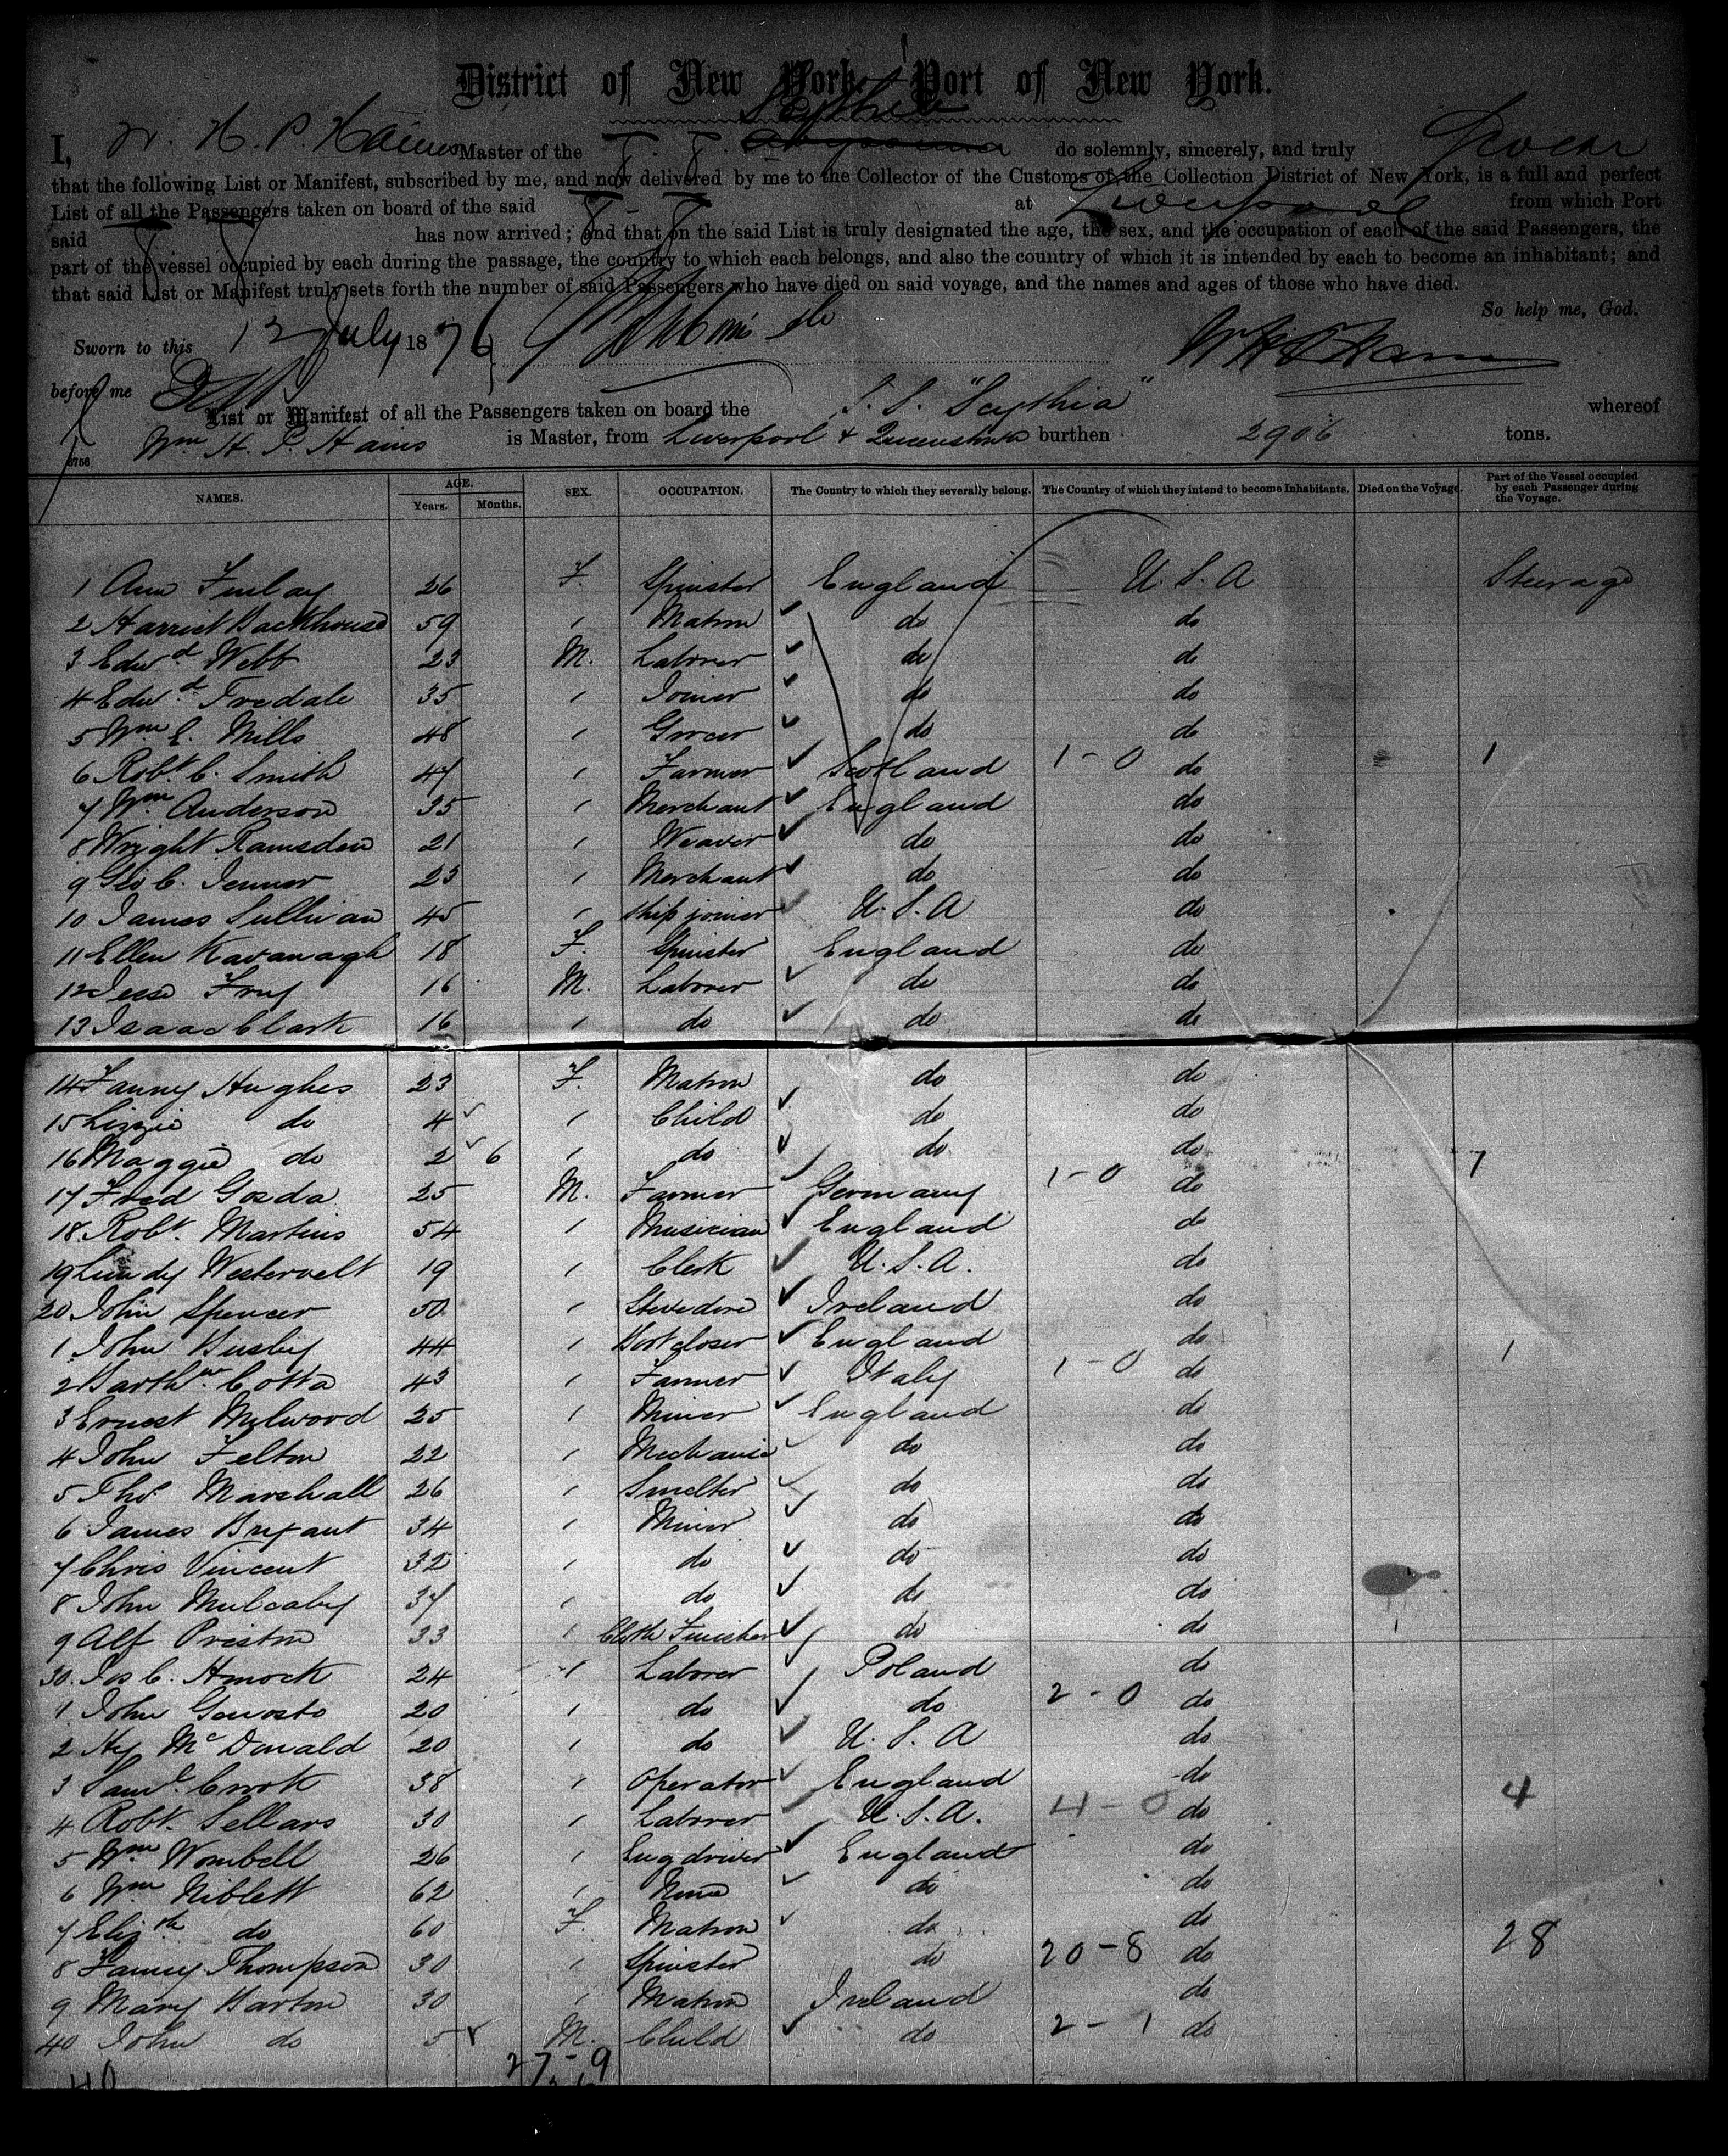 District of New York. Port of New York.
Scythia
I, W. H. P. Hains Master of the S. S. Abyssinia do solemnly, sincerely, and truly Swear
that the following List or Manifest, subscribed by me, and now delivered by me to the Collector of the Customs of the Collection District of New York, is a full and perfect
List of all the Passengers taken on board of the said S. S. at Liverpool from which Port
said S. S. has now arrived; and that on the said List is truly designated the age, the sex, and the occupation of each of the said Passengers, the
part of the vessel occupied by each during the passage, the country to which each belongs, and also the country of which it is intended by each to become an inhabitant; and
that said List or Manifest truly sets forth the number of said Passengers who have died on said voyage, and the names and ages of those who have died.
So help me, God.
Sworn to this 12 July 1876 W H P Hains
before me
List or Manifest of all the Passengers taken on board the S. S. "Scythia" whereof
Wm H. P. Hains is Master, from Liverpool & Queenstown burthen 2906 tons.
NAMES. AGE. Years. Months. SEX. OCCUPATION. The Country to which they severally belong. The Country of which they intend to become Inhabitants. Died on the Voyage. Part of the Vessel occupied by each Passenger during the Voyage.
1 Ann Finlay 26 F. Spinster England U. S. A Steerage
2 Harriet Backhouse 59 " Matron do do
3 Edwd Webb 23 M. Laborer do do
4 Edwd Tredale 35 " Joiner do do
5 Wm E. Mills 48 " Grocer do do
6 Robt C. Smith 47 " Farmer Scotland 1-0 do 1
7 Wm Anderson 35 " Merchant England do
8 Wright Ramsden 21 " Weaver do do
9 Geo C. Jenner 23 " Merchant do do
10 James Sullivan 45 " Ship joiner U. S. A do
11 Ellen Kavanagh 18 F. Spinster England do
12 Jesse Frey 16 M. Laborer do do
13 Isaac Clark 16 " do do do
14 Fanny Hughes 23 F. Matron do do
15 Lizzie do 4 " Child do do
16 Maggie do 2 6 " do do do 7
17 Fred Gosda 25 M. Farmer Germany 1-0 do
18 Robt. Martins 54 " Musician England do
19 Lundy Westervelt 19 " Clerk U. S. A. do
20 John Spencer 50 " Stevedore Ireland do
1 John Busby 44 " Bootcloser England do 1
2 Barthw. Cotta 43 " Farmer Italy 1-0 do
3 Ernest Milwood 25 " Miner England do
4 John Felton 22 " Mechanic do do
5 Thos Marshall 26 " Smelter do do
6 James Bryant 34 " Miner do do
7 Chris Vincent 32 " do do do
8 John Mulcahy 37 " do do do
9 Alf Preston 33 " Cloth Finisher do do
30. Jos C. Hmock 24 " Laborer Poland do
1 John Gowosto 20 " do do 2-0 do
2 Hy McDonald 20 " do U. S. A do
3 Saml. Crook 38 " Operator England do 4
4 Robt. Sellars 30 " Laborer U. S. A. 4-0 do
5 Wm Wombell 26 " Eng driver England do
6 Wm Niblett 62 " None do do
7 Elizth do 60 F. Matron do do 28
8 Fanny Thompson 30 " Spinster do 20-8 do
9 Mary Barton 30 " Matron Ireland do
40 John do 5 M. Child do 2-1 do
40 27-9